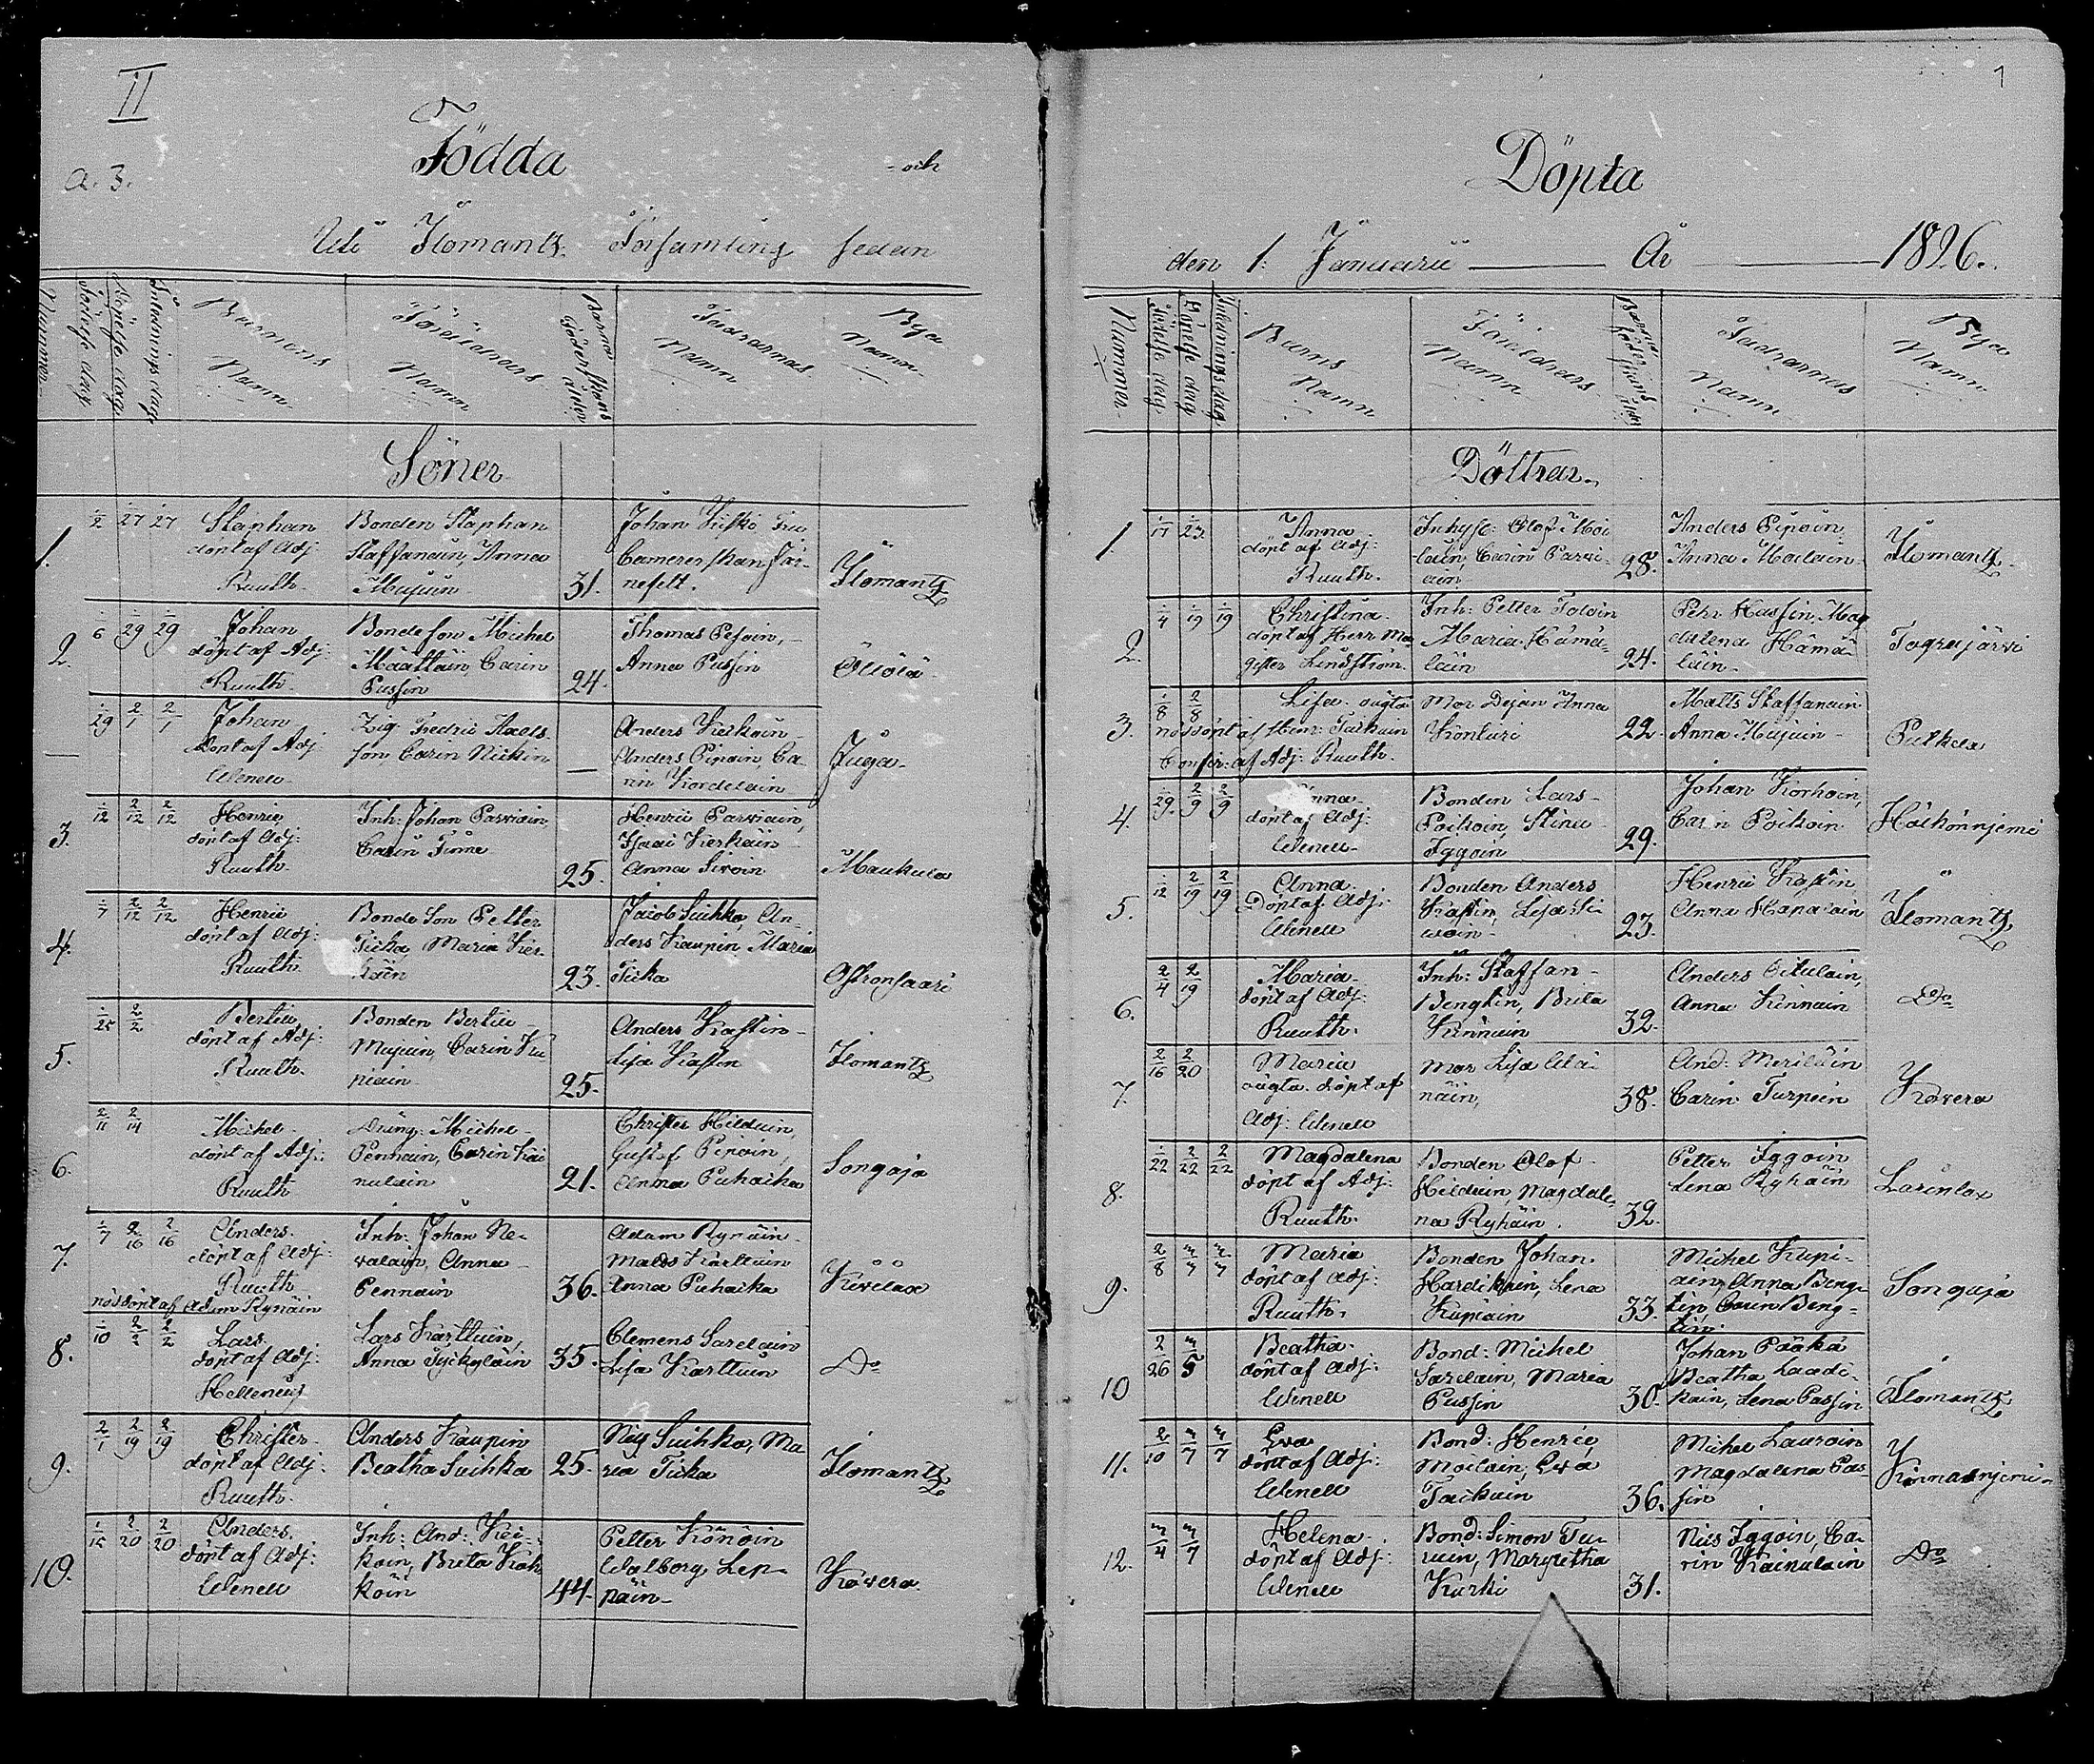 II
a. 3.
Födda - och
Uti Ilomantz Församling sedan
Nummer
Födelse dag
Döpelse dag
Inlednings dag
Barnens Namn
Föräldrars Namn
Barna Föderskans ålder
Faddrarnas Namn
Bya Namn
Söner
1. 1/2 1/27 1/27
Staphan
döpt af Adj:
Ruuth.
Bonden Staphan
Staffanain, Anna
Mujuin
31.
Johan Kuski, Fru
Camererskan Jär-
nefelt.
Ilomantz
2. 1/6 1/29 1/29
Johan
döpt af Adj:
Ruuth.
Bondeson Michel
Määttäin, Carin
Pussin
24.
Thomas Pesoin,
Anna Pussin
Öllölä
— 1/29 2/1 2/1
Johan
döpt af Adj:
Wenell
Zig. Fredric
son Carin Nickin
—
Anders Kerkoin
Anders Pipoin, Ca-
rin Kordelain
Juga
3. 1/12 2/12 2/12
Henric
döpt af Adj:
Ruuth.
Inh: Johan Parviain
Carin Timo
25.
Henric Parviain,
Isaac Kerkäin
Anna Sivoin
Maukula
4. 1/7 2/12 2/12
Henric
döpt af Adj:
Ruuth
Bonde Son Petter
Ticka, Maria Ker
käin
23.
Jacob Suihko, An-
ders Kaupin, Maria
Ticka
Ostronsaari
5. 1/25 2/2
Bertil
döpt af Adj:
Ruuth.
Bonden Bertil
Mujuin, Carin Ku
piain
25.
Anders Kastin
Lisa Kastin
Ilomantz
6. 2/11 2/14
Michel
döpt af Adj:
Ruuth
Dräng: Michel
Pennain, Carin Kai
nulain
21.
Christer Hilduin,
Gustaf Pipoin,
Anna Puhacka
Songaja
7. 1/7 2/16 2/16
Anders.
döpt af Adj:
Ruuth
nöddöpt af Adam Rynäin
Inh: Johan Ne-
valain, Anna
Pennain
36.
Adam Rynäin
Matts Karttuin
Anna Puhacka
Kivelax
8. 1/10 2/2 2/2
Lars.
döpt af Adj:
Helleneuz
Lars Karttuin,
Anna Tyckyläin
35.
Clemens Sarelain
Lisa Karttuin
Do
9. 2/1 2/19 2/19
Christer
döpt af Adj:
Ruuth.
Anders Kaupin
Beatha Suihka
25.
Nils Suihko, Ma
ria Ticka
Ilomantz
10. 1/15 2/20 2/20
Anders.
döpt af Adj:
Wenell
Inh: And: Kei-
koin, Brita Kok
köin
44.
Petter Könöin
Walborg Lep-
päin
Kovero
1
Döpta
den 1. Januarii — År — 1826.
Nummer
Födelse dag
Döpelse dag
Inledningsdag
Barns Namn
Föräldrars Namn
Barna föderskans ålder
Faddrarnas Namn
Bya Namn
Döttrar.
1. 1/17 1/23
Anna
döpt af Adj:
Ruuth.
Inhyse: Olof Moi
lain, Carin Parvi-
ain
28.
Anders Pipoin,
Anna Moilain
Ilomantz
2. 1/4 1/19 1/19
Christina
döpt af Herr Ma
gister Lindström.
Inh: Petter Toloin
Maria Hämä-
läin
24.
Pehr Hassin, Mag
dalena Hämä-
läin
Tograjärvi
3. 1/8 2/8
Lisa oägta
nöddöpt af Henr: Turhuin
Confir: af Adj: Ruuth.
Mor Dejan Anna
Konturi
22.
Matts Staffanain
Anna Mujuin
Putkela
4. 1/29. 2/9 2/9
Anna
döpt af Adj:
Wenell
Bonden Lars
Poikoin, Stina
Iggoin
29.
Johan Korhoin,
Carin Poikoin
Hälkönnjemi
5. 1/12 2/19 2/19
Anna
Döpt af Adj:
Wenell
Bonden Anders
Kastin, Lisa Si
woin
23.
Henric Kastin
Anna Hapalain
Ilomantz
6. 2/4 2/19
Maria
döpt af Adj:
Ruuth.
Inh: Staffan
Bengtin, Brita
Kinnuin
32.
Anders Oitulain,
Anna Kinnuin
Do
7. 2/16 2/20
Maria
oägta. döpt af
Adj: Wenell
Mor Lisa Wäi
näin,
38.
And: Meriläin
Carin Turpein
Kovero
8. 1/22 2/22 2/22
Magdalena
döpt af Adj:
Ruuth.
Bonden Olof
Hilduin, Magdale
na Ryhäin.
32.
Petter Iggoin
Lena Ryhäin
Larinlax
9. 2/8 3/7 3/7
Maria
döpt af Adj:
Ruuth.
Bonden Johan
Hardikain, Lena
Kupiain
33.
Michel Kupi-
ain, Anna Beng-
tin Carin Beng-
tin.
Songaja
10 2/26 3/5
Beatha
döpt af Adj:
Wenell
Bond: Michel
Sarelain, Maria
Pussin
30.
Johan Pääkä
Beatha Laadi-
kain, Lena Pussin
Ilomantz
11. 2/10 3/7 3/7
Eva
döpt af Adj:
Wenell
Bond: Henric
Moilain, Eva
Tackuin
36.
Michel Lauroin
Magdalena Pus-
sin
Kinnasnjemi
12. 3/4 3/7
Helena
döpt af Adj:
Wenell
Bond: Simon Tu-
ruin, Margretha
Kurki
31.
Nils Iggoin, Ca-
rin Kainulain
Do